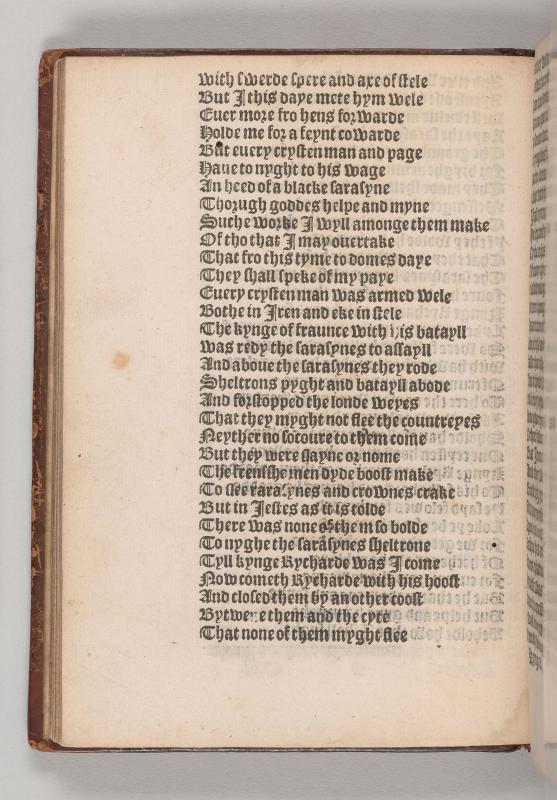 with swerde spere and axe of stele
But I this daye mete hym wele
Euer more fro hens forwarde
Holde me for a feynt cowarde
But euery crysten man and page
Haue to nyght to his wage
An heed of a blacke sarasyne
Thorugh goddes helpe and myne
Suche worke I wyll amonge them make
Of tho that I may ouertake
That fro this tyme to domes daye
They shall speke of my paye
Euery crysten man was armed wele
Bothe in Iren and eke in stele
The kynge of fraunce with his batayll
was redy the sarasynes to assayll
And aboue the sarasynes they rode
Sheltrons pyght and batayll abode
And forstopped the londe weyes
That they myght not flee the countreyes
Neyther no socoure to them come
But they were slayne or nome
The frensshe men dyde boost make
To slee sarasynes and crownes crake
But in Iestes as it is tolde
There was none of them so bolde
To nyghe the sarasynes sheltrone
Tyll kynge Rycharde was I come
Now cometh Rycharde with his hoost
And closed them by an other coost
Bytwene them and the cyte
That none of them myght flee